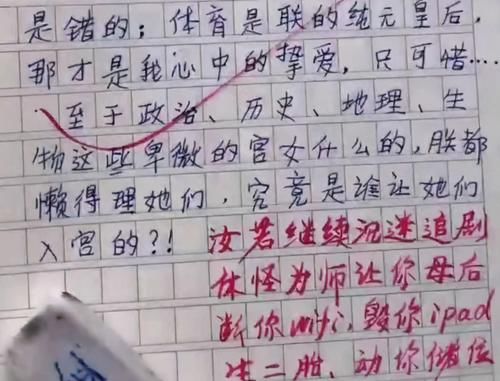 是错的；体育是联的纯元皇后，
那才是我心中的挚爱，只可惜…
至于政治、历史、地理、生
物这些卑微的官女什么的，朕都
懒得理她们，究竟是谁让她们
入宫的？！汝若继续沉迷追剧
休怪为师让你母后
断你wifi，毁你ipad
生二胎、动你储位